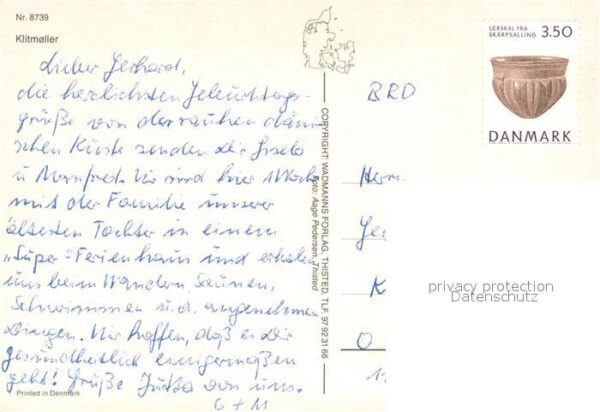 Nr. 8739
Klitmøller
Lieber Gerhard,
die herzlichsten Geburtstags-
grüße von der rauhen däni-
schen Küste senden Dir Gisela
u Manfred. Wir sind hier 1 Woche
mit der Familie unserer
ältesten Tochter in einem
„Super"-Ferienhaus und erholen
uns beim Wandern, Saunen,
Schwimmen u. a. angenehmen
Dingen. Wir hoffen, daß es Dir
gesundheitlich einigermaßen
geht! Grüße Jutta von uns.
G + M
Printed in Denmark
COPYRIGHT: WADMANNS FORLAG, THISTED. TLF. 97 92 31 66
Foto: Aage Pedersen, Thisted
LERSKÅL FRA
SKARPSALLING
3.50
DANMARK
BRD
Herrn
Ge
K
O
privacy protection
Datenschutz